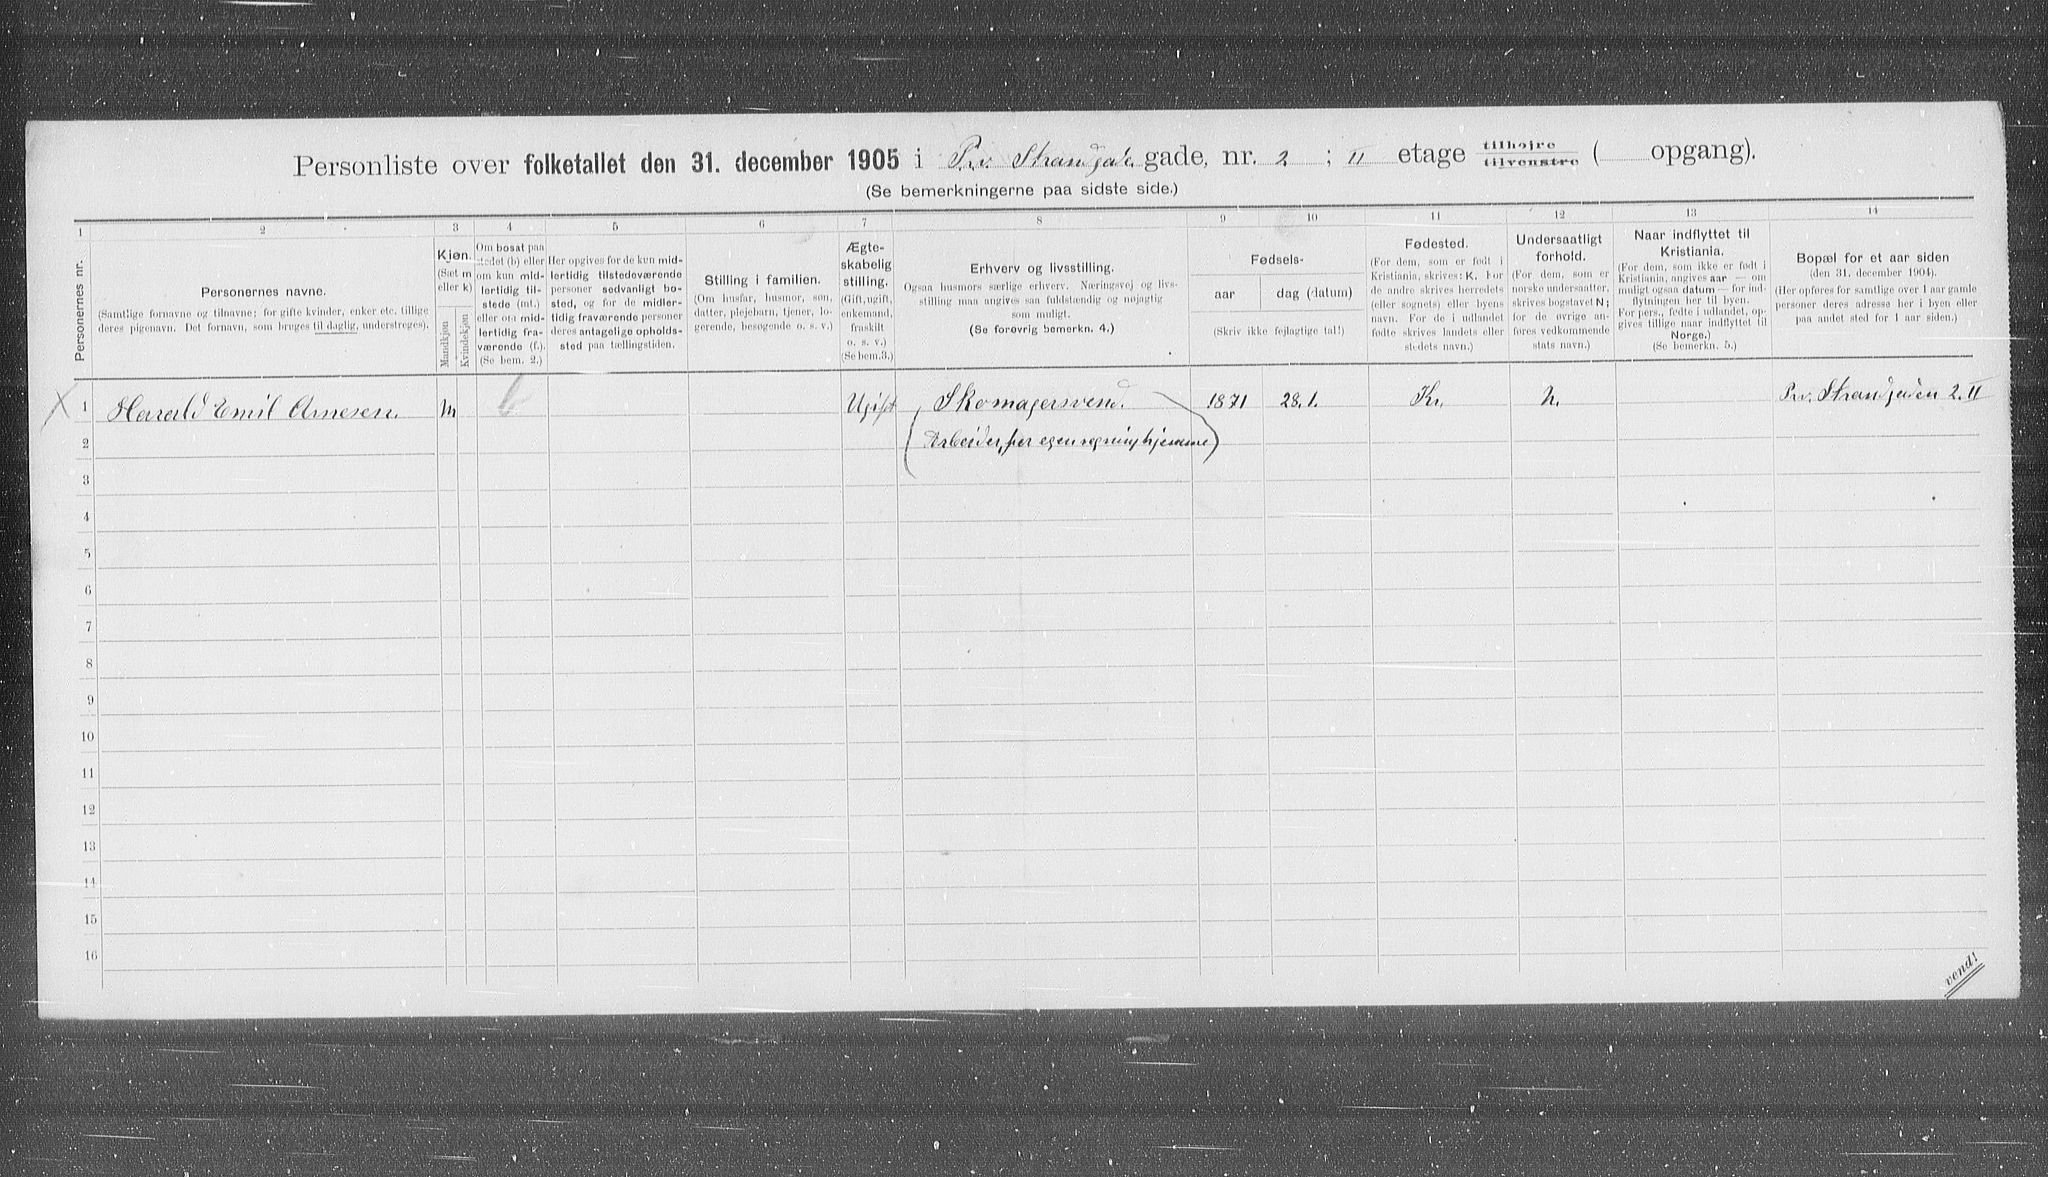 Personliste over folketallet den 31. december 1905 i Prv. Strandgade gade, nr. 2 ; II etage tilhøjre tilvenstre ( opgang).
(Se bemerkningerne paa sidste side.)
1 2 3 4 5 6 7 8 9 10 11 12 13 14
Personernes nr.
Personernes navne.
(Samtlige fornavne og tilnavne; for gifte kvinder, enker etc. tillige
deres pigenavn. Det fornavn, som bruges til daglig, understreges).
Kjøn.
(Sæt m
eller k)
Mandkjøn
Kvindekjøn
Om bosat paa
stedet (b) eller
om kun mid-
lertidig til-
stede (mt.)
eller om mid-
lertidig fra-
værende (f.).
(Se bem. 2.)
Her opgives for de kun mid-
lertidig tilstedeværende
personer sedvanligt bo-
sted, og for de midler-
tidig fraværende personer
deres antagelige opholds-
sted paa tællingstiden.
Stilling i familien.
(Om husfar, husmor, søn,
datter, plejebarn, tjener, lo-
gerende, besøgende o. s. v.)
Ægte-
skabelig
stilling.
(Gift, ugift,
enkemand,
fraskilt
o. s. v.)
(Se bem.3.)
Erhverv og livsstilling.
Ogsaa husmors særlige erhverv. Næringsvej og livs-
stilling maa angives saa fuldstændig og nøjagtig
som muligt.
(Se forøvrig bemerkn. 4.)
Fødsels-
aar
dag (datum)
(Skriv ikke fejlagtige tal!)
Fødested.
(For dem, som er født i
Kristiania, skrives: K. For
de andre skrives herredets
(eller sognets) eller byens
navn. For de i udlandet
fødte skrives landets eller
stedets navn.)
Undersaatligt
forhold.
(For dem, som er
norske undersaatter,
skrives bogstavet N;
for de øvrige an-
føres vedkommende
stats navn.)
Naar indflyttet til
Kristiania.
(For dem, som ikke er født i
Kristiania, angives aar — om
muligt ogsaa datum — for ind-
flytningen her til byen.
For pers., fødte i udlandet, op-
gives tillige naar indflyttet til
Norge.)
(Se bemerkn. 5.)
Bopæl for et aar siden
(den 31. december 1904).
(Her opføres for samtlige over 1 aar gamle
personer deres adresse her i byen eller
paa andet sted for 1 aar siden.)
1 Harald Emil Arnesen. m b Ugift Skomagersvend. 1871 28.1. Kr. N. Prv. Strandgaden 2. II
2 (Arbeider for egen regning hjemme)
3
4
5
6
7
8
9
10
11
12
13
14
15
16
vend!